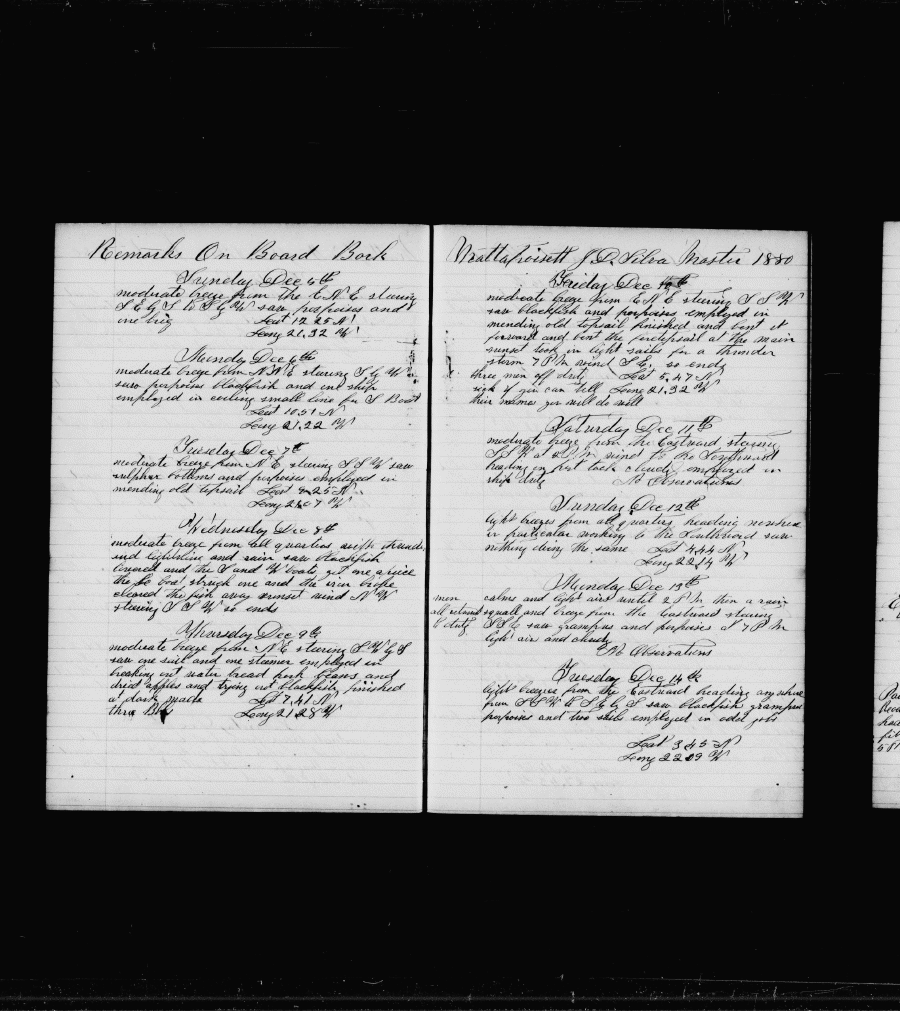 Remarks On Board Bark
Sunday Dec 5th
moderate breeze from the E N E stearing
S E by S to S by W saw porpoises and
one brig Lat 12 25 N
Long 21,32 W
Monday Dec 6th
moderate breeze from N N E stearing S by W
saw porpoises blackfish and one ship
employed in coiling small line for S Boat
Lat 10.51 N
Long 21,22 W
Tuesday Dec 7th
moderate breeze from N E stearing S S W saw
sulphur bottoms and porpoises employed in
mending old topsail Lat 25 N
Long 21.07 W
Wednesday Dec 8th
moderate breeze from all quarters with thunder
and lightning and rain saw blackfish
lowered and the S and W boats got one apiece
the boat struck one and the iron broke
cleared the fish away sunset wind N W
stearing S S W so ends
Thursday Dec 9th
moderate breeze from N E stearing S W by S
saw one sail and one steamer employed in
breaking out water bread pork beans and
dried apples and trying out blackfish finished
at dark made Lat 7,41 N
three Bbl Long 21.28 W
Mattapoisett J. D. Silva Master 1880
Friday Dec 10th
moderate breeze from E N E stearing S S W
saw blackfish and porpoises employed in
mending old topsail finished and bent it
forward and bent the foretopsail at the main
sunset took in light sails for a thunder
storm 7 P M wind S E so ends
three men off duty Lat 5,47 N
sick if you can tell Long 21,32 W
their mama you will do well
Saturday Dec 11th
moderate breeze from the Eastward stearing
S S W at P M wind to the Southward
heading in port tack cloudy employed in
ships duty No Observations
Sunday Dec 12th
light breezes from all quarters heading nowhere
in particular working to the Southward saw
nothing doing the same Lat 4,44 N
Long 22,14 W
Monday Dec 13th
men calms and light airs until 2 P M then a rain
all returned squall and breeze from the Eastward stearing
to duty S S E saw grampus and porpoises at 7 P M
light air and cloudy
No Observations
Tuesday Dec 14th
light breezes from the Eastward heading anywhere
from S S W to S E by S saw blackfish grampus
porpoises and two sails employed in odd jobs
Lat 3 45 N
Long 22 09 W